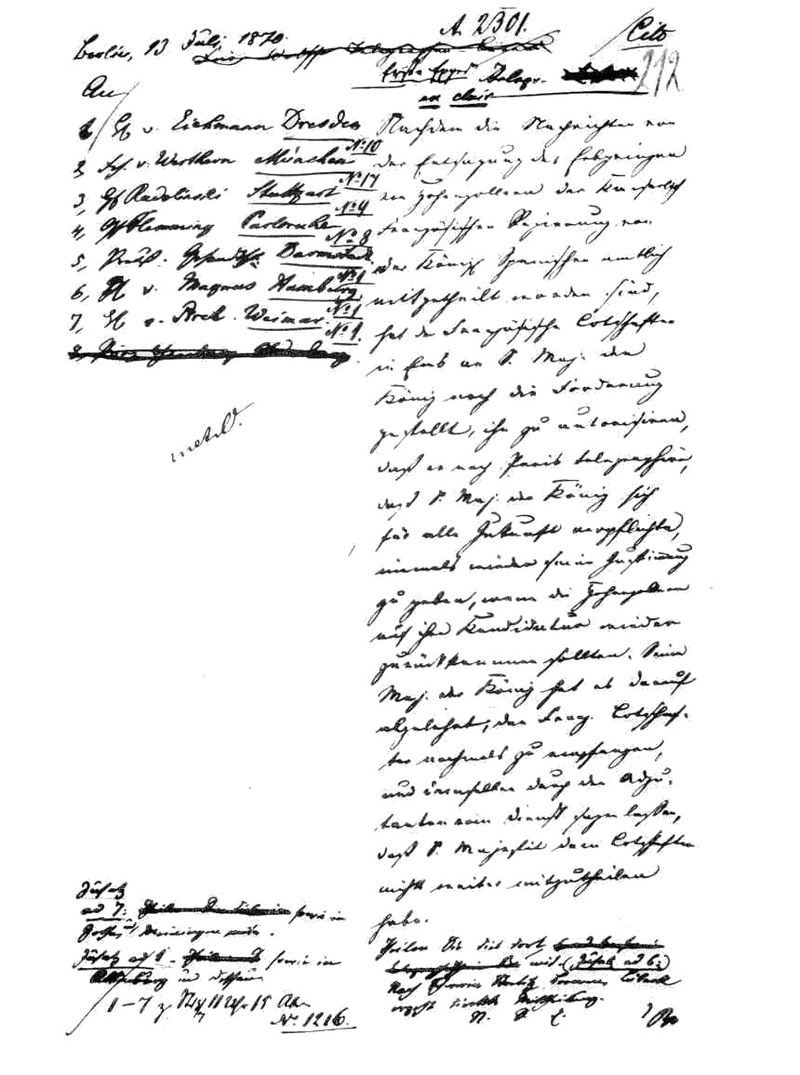 Berlin, 13 Juli 1870.
A. 2301.
Cito
212
Telegr.
en clair
An
1, H v. Eichmann Dresden
No 10
2, Frh. v. Werthern München
No 17
3, Gf Radolinski Stuttgart
No 4
4, Gf Flemming Carlsruhe
No 8
5, Preuß. Gesandtsch. Darmstadt
No 1
6, H v. Magnus Hamburg
No 1
7, H v. Weimar
No 1.
Nachdem die Nachrichten von
der Entsagung des Erbprinzen
von Hohenzollern der Kaiserlich
Französischen Regierung von
der König Spanischen amtlich
mitgetheilt worden sind,
hat der Französische Botschafter
in Ems an S. Maj. den
König noch die Forderung
gestellt, ihn zu autorisiren,
daß er nach Paris telegraphire,
daß S. Maj. der König sich
für alle Zukunft verpflichte,
niemals wieder seine Zustimmung
zu geben, wenn die Hohenzollern
auf ihre Kandidatur wieder
zurückkommen sollten. Seine
Maj. der König hat es darauf
abgelehnt, den Franz. Botschaf-
ter nochmals zu empfangen,
und demselben durch den Adju-
tanten vom Dienst sagen lassen,
daß S. Majestät dem Botschafter
nichts weiter mitzutheilen
habe.
Theilen Sie dies dort
mit. (Zusatz ad 6:)
Nach Lübeck
ergeht direkte Mittheilung.
Zusatz
ad 7: sowie in
Gotha, Meiningen
Zusatz ad 1 sowie in
Altenburg und Dessau
1-7 z. Stg 11 Uhr 15 Ab.
No. 1216.